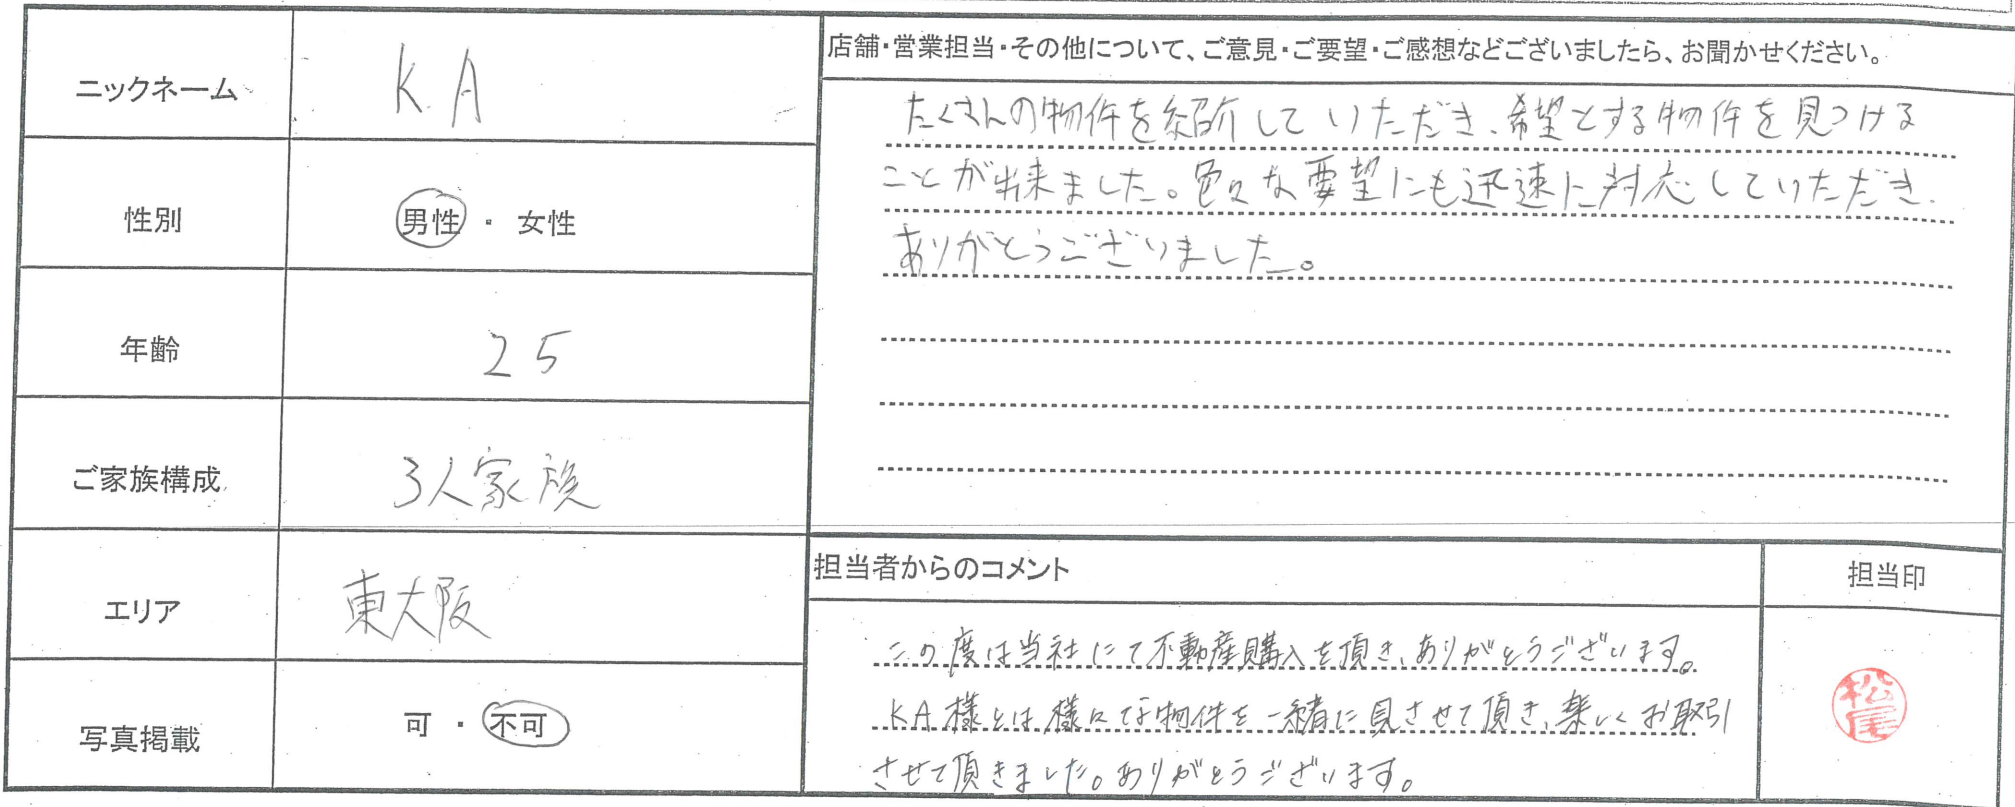 ニックネーム
K.A
性別
男性 ・ 女性
年齢
25
ご家族構成
3人家族
エリア
東大阪
写真掲載
可 ・ 不可
店舗・営業担当・その他について、ご意見・ご要望・ご感想などございましたら、お聞かせください。
たくさんの物件を紹介していただき、希望とする物件を見つける
ことが出来ました。色々な要望にも迅速に対応していただき、
ありがとうございました。
担当者からのコメント
この度は当社にて不動産購入を頂き、ありがとうございます。
K.A様とは、様々な物件を一緒に見させて頂き、楽しくお取引
させて頂きました。ありがとうございます。
担当印
松尾